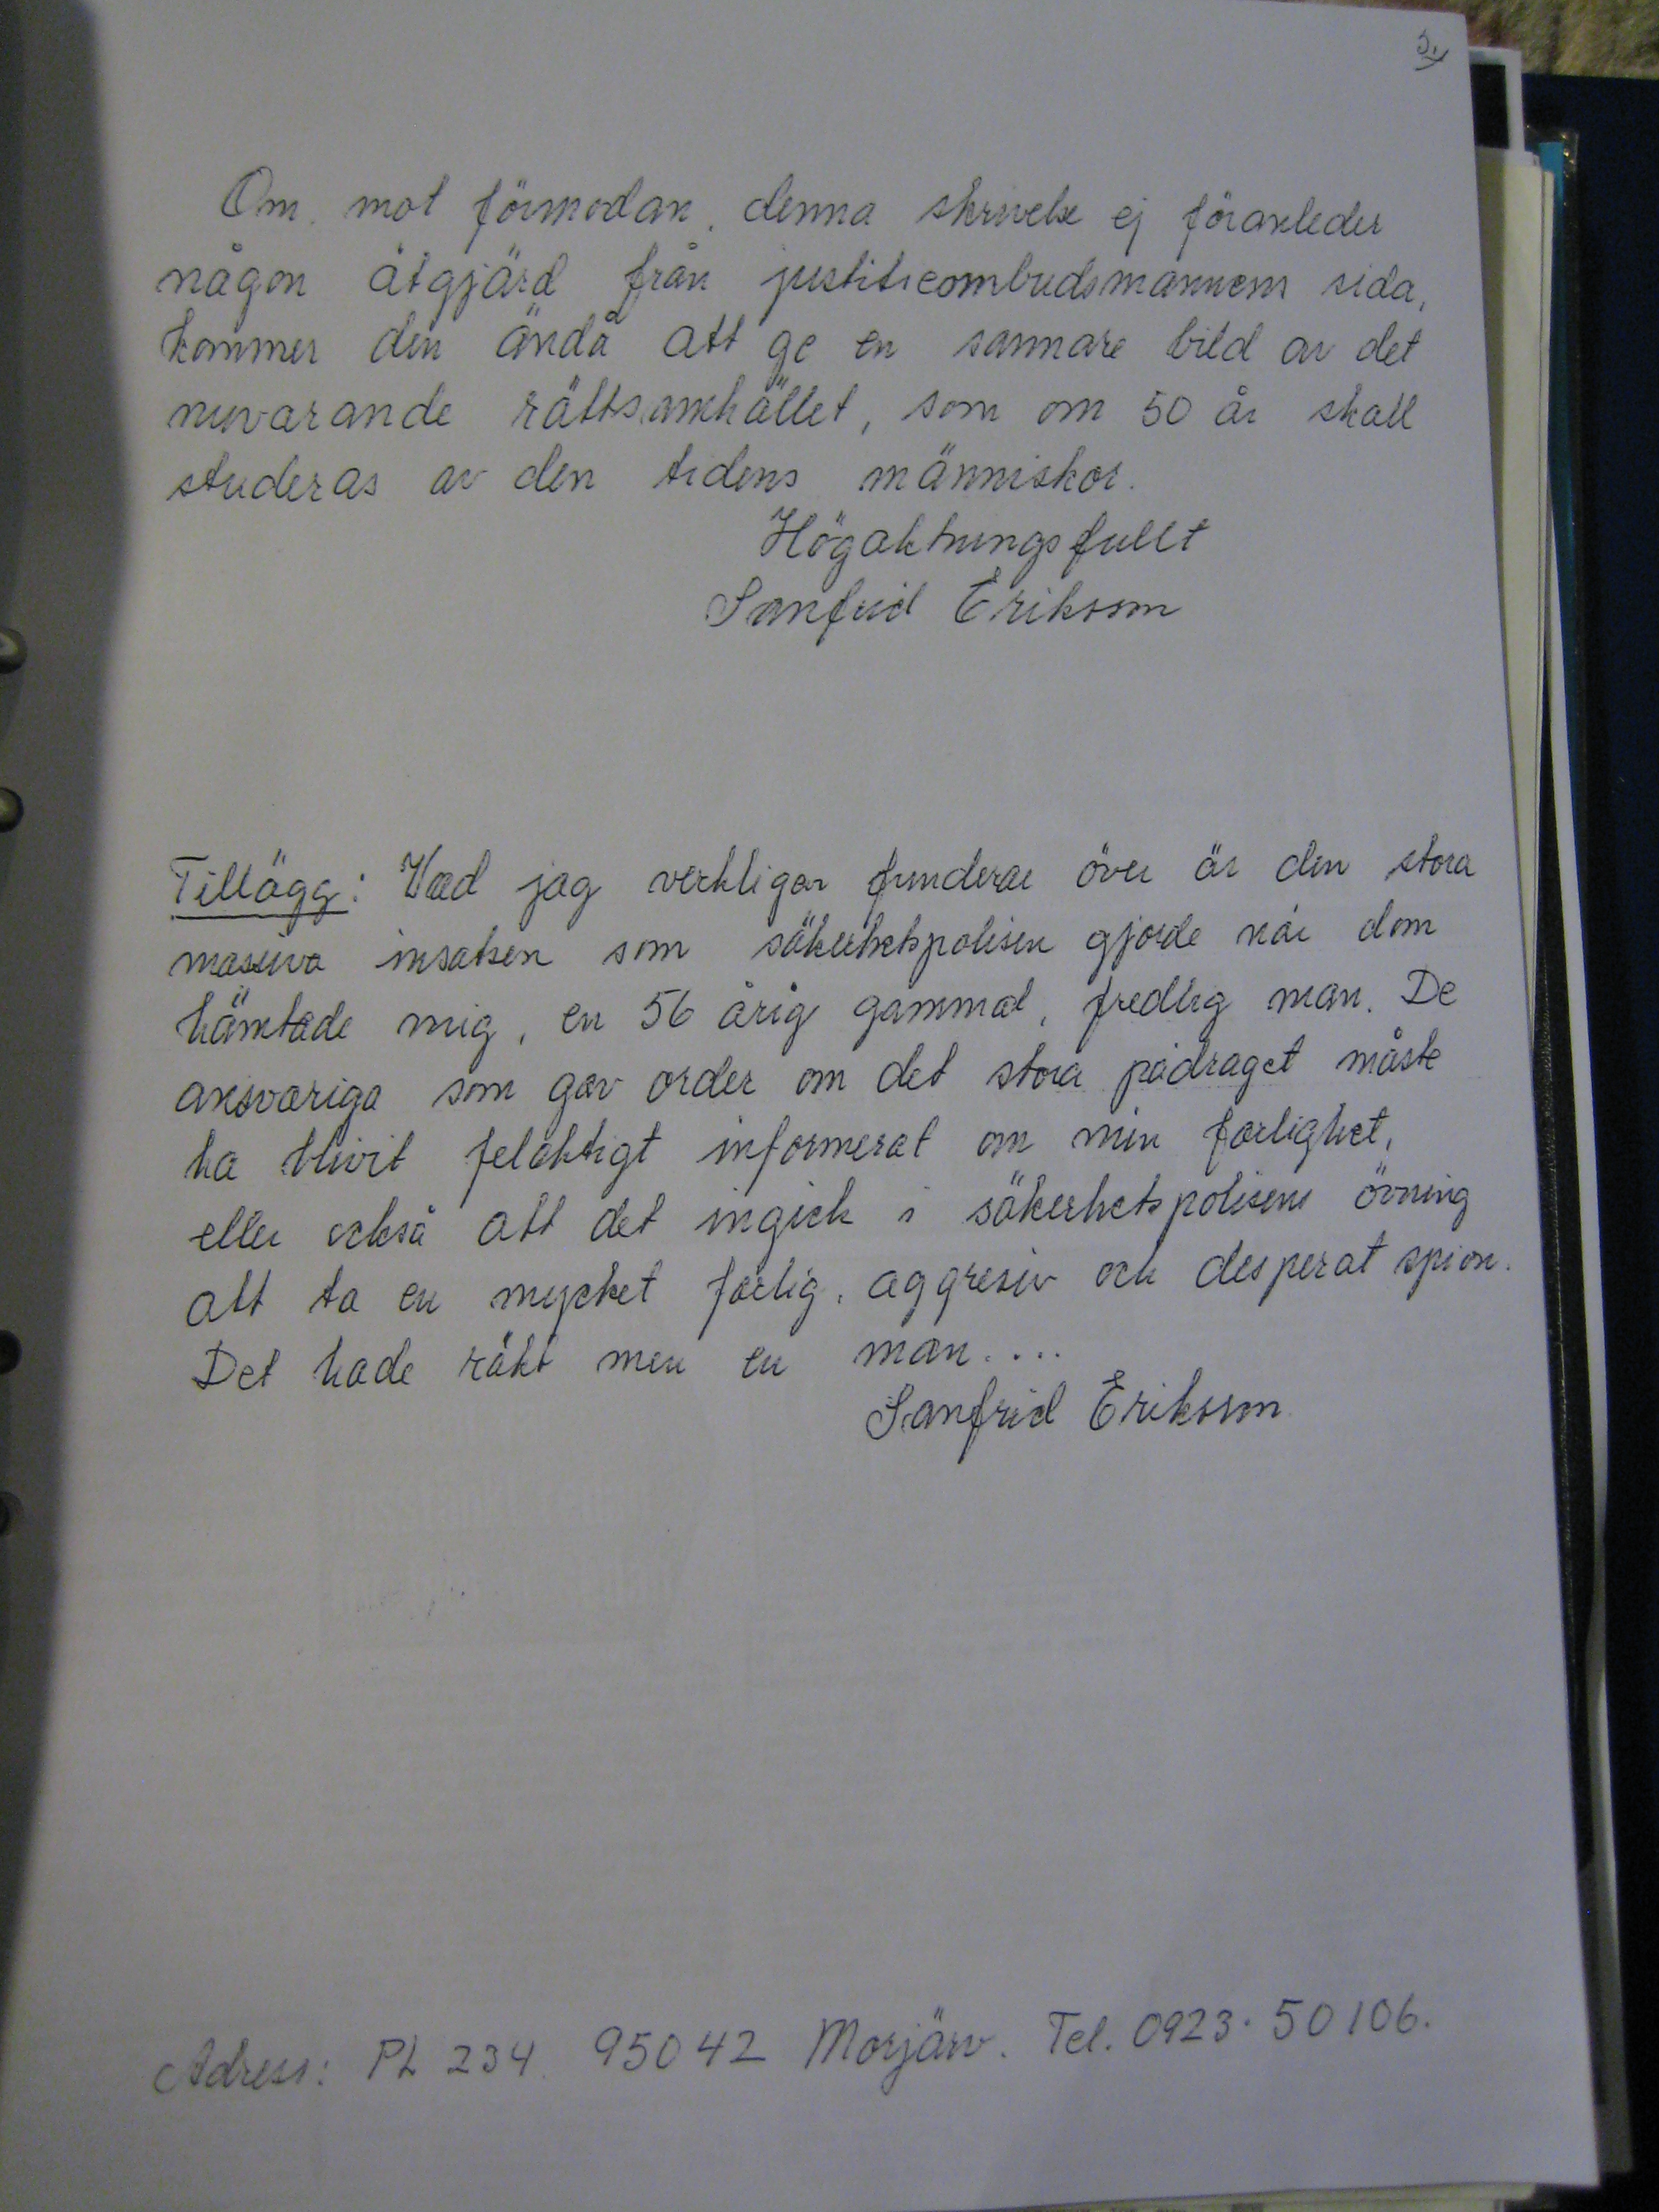 5.
Om mot förmodan, denna skrivelse ej föranleder
någon åtgjärd från justitieombudsmannens sida,
kommer den ändå att ge en sannare bild av det
nuvarande rättsamhället, som om 50 år skall
studeras av den tidens människor.
Högaktningsfullt
Sanfrid Eriksson
Tillägg: Vad jag verkligen funderar över är den stora
massiva insatsen som säkerhetspolisen gjorde när dom
hämtade mig, en 56 årig gammal, fredlig man. De
ansvariga som gav order om det stora pådraget måste
ha blivit felaktigt informerat om min farlighet,
eller också att det ingick i säkerhetspolisens övning
att ta en mycket farlig, aggresiv och desperat spion.
Det hade räkt men en man....
Sanfrid Eriksson
Adress: PL 234 95042 Morjärv. Tel. 0923-50106.